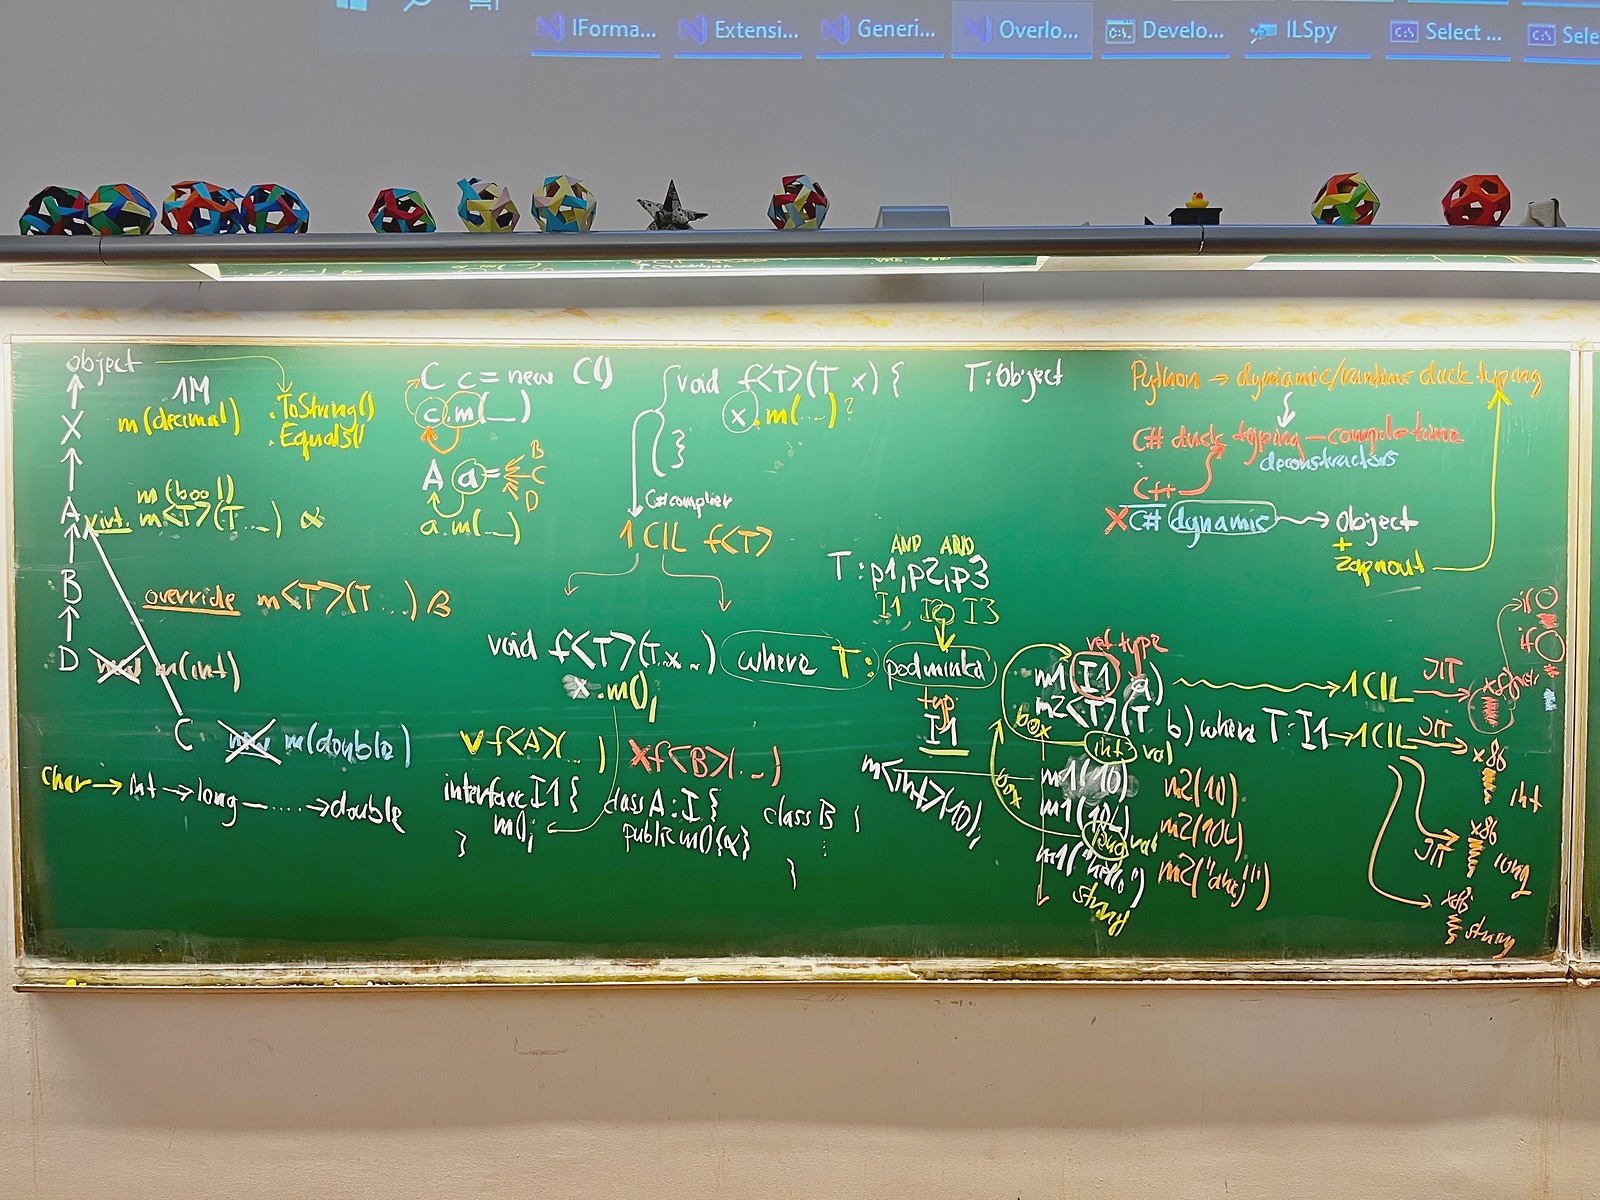 IForma...
Extensi...
Generi...
Overlo...
Develo...
ILSpy
Select ...
Sele
object
1M
m(decimal)
.ToString()
.Equals()
X
m(bool)
A virt. m<T>(T...) α
B
override m<T>(T...) β
D new m(int)
C new m(double)
char → int → long → ..... → double
C c = new C()
c.m(_)
A a =
B
C
D
a.m(...)
void f<T>(T x) {
x.m(...)?
}
C# compiler
1 CIL f<T>
T:Object
void f<T>(T x..) where T: podmínka
x.m();
typ
I1
AND AND
T: p1, p2, p3
I1 I2 I3
v f<A>(...)
x f<B>(...)
interface I1 {
m();
}
class A : I {
public m() {α}
class B {
}
m<int>(10);
Python → dynamic/runtime duck typing
C# duck typing - compile time
deconstructors
C++
X C# dynamic → Object
+
zapnout
ref type
m1(I1 a)
m2<T>(T b) where T:I1
→ 1 CIL JIT
→ 1 CIL JIT
box
int val
m1(10)
m2(10)
box
m1(10L)
m2(10L)
val
m1("hello")
m2("ahoj")
string
if
if
x86
int
x86
JIT
long
x86
string